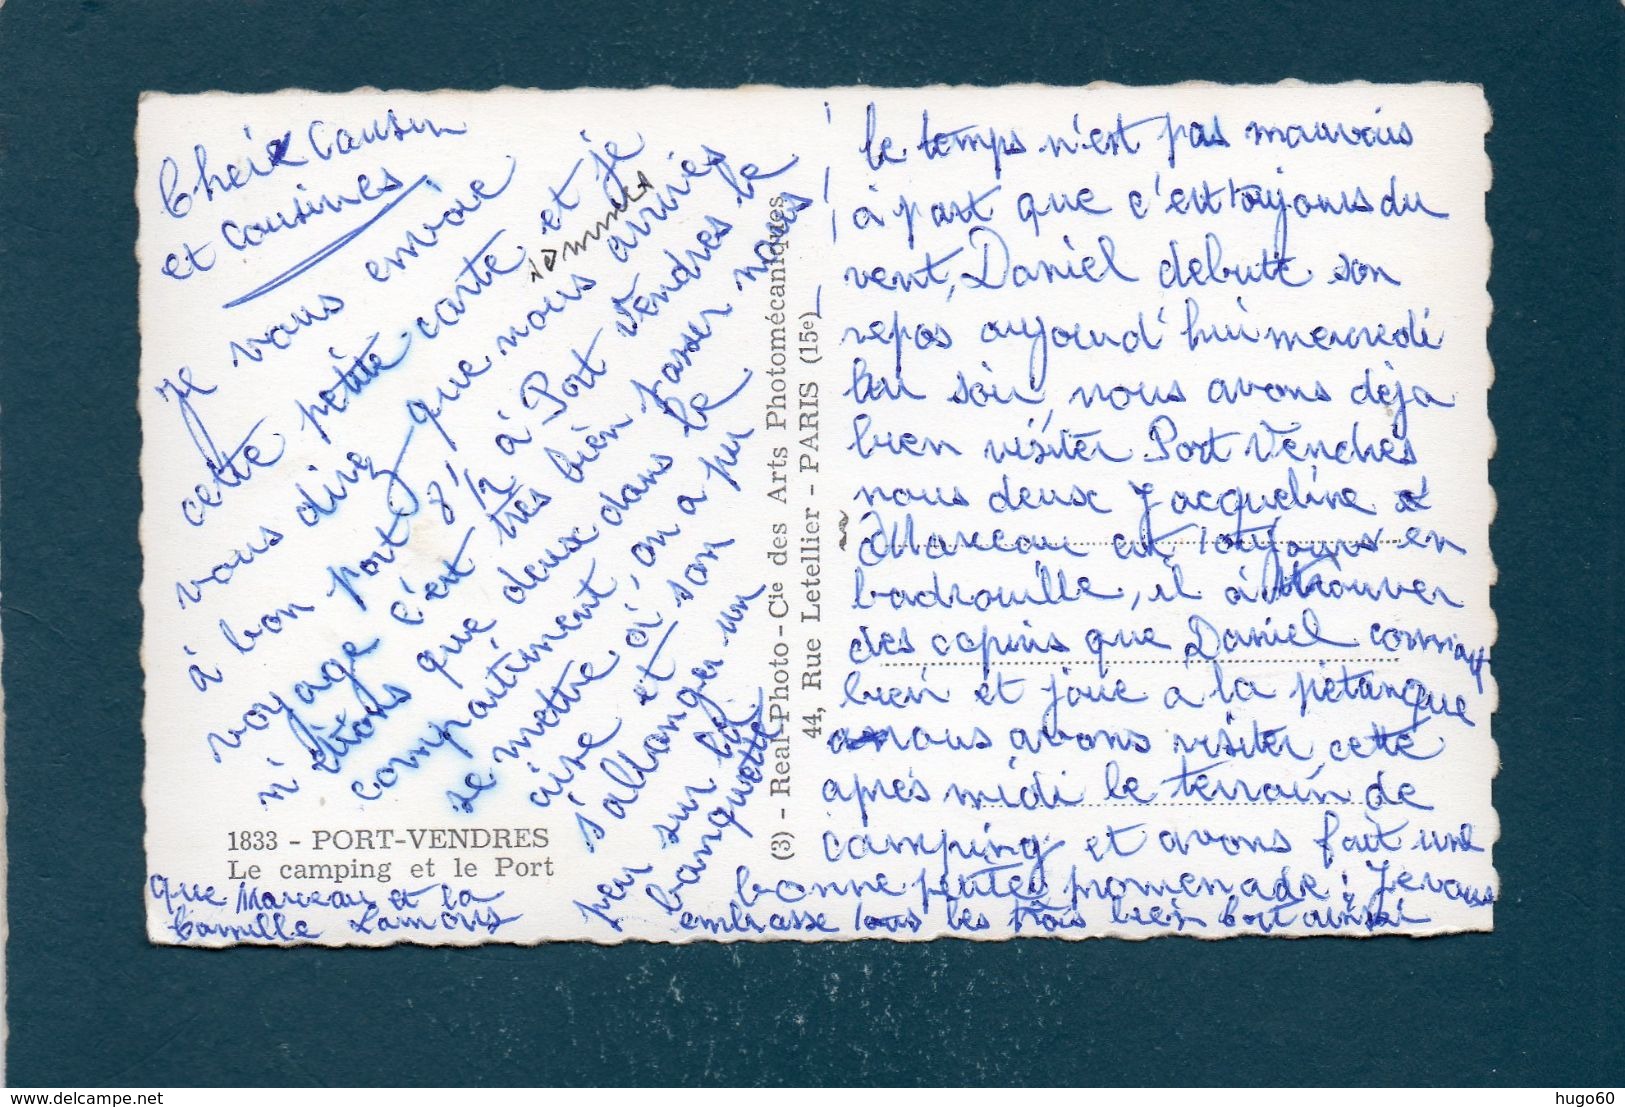 Cheix Cousin
et cousines
je vous envoie
cette petite carte et je
vous dire que nous sommes arrivés
à bon port 8h 1/2 à Port Vendres le
voyage c'est très bien passer nous
n'étions que deux dans le
compartiment, on a pu
se mettre à son
aise et
s'allonger un
peu sur la
banquette
le temps n'est pas mauvais
à part que c'est toujours du
vent, Daniel debute son
repos aujourd'hui mercredi
au soir, nous avons déja
bien visiter Port Vendres
nous deux Jacqueline &
Marceau est toujours en
badrouille, il à trouver
des copins que Daniel connait
bien et joue a la pétanque
nous avons visiter cette
après midi le terrain de
camping et avons fait une
bonne petite promenade. Je vous
embrasse tous les trois bien fort ainsi
que Marceau et la
famille Lamors
1833 - PORT-VENDRES
Le camping et le Port
(3) - Real-Photo - Cie des Arts Photomécaniques
44, Rue Letellier - PARIS (15e)
delcampe.net
hugo60